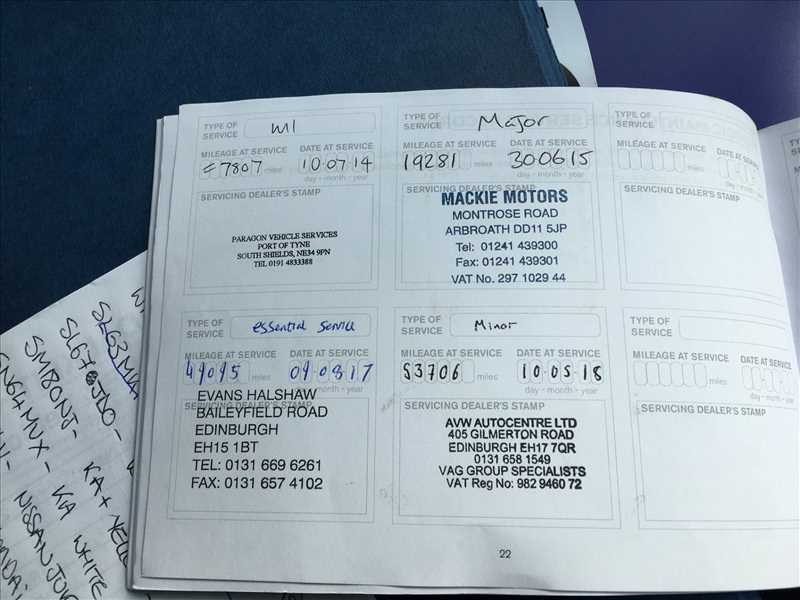 TYPE OF SERVICE
MILEAGE AT SERVICE DATE AT SERVICE
7807 miles 10 07 14
day - month - year
SERVICING DEALER'S STAMP
PARAGON VEHICLE SERVICES
PORT OF TYNE
SOUTH SHIELDS, NE34 9PN
TEL 0191 4833388
TYPE OF SERVICE Major
MILEAGE AT SERVICE DATE AT SERVICE
19281 miles 300615
day - month - year
SERVICING DEALER'S STAMP
MACKIE MOTORS
MONTROSE ROAD
ARBROATH DD11 5JP
Tel: 01241 439300
Fax: 01241 439301
VAT No. 297 1029 44
TYPE OF SERVICE
MILEAGE AT SERVICE DATE AT SERVICE
miles
day - month - year
SERVICING DEALER'S STAMP
TYPE OF SERVICE essential service
MILEAGE AT SERVICE DATE AT SERVICE
49095 miles 090817
day - month - year
SERVICING DEALER'S STAMP
EVANS HALSHAW
BAILEYFIELD ROAD
EDINBURGH
EH15 1BT
TEL: 0131 669 6261
FAX: 0131 657 4102
TYPE OF SERVICE Minor
MILEAGE AT SERVICE DATE AT SERVICE
53706 miles 10 05 18
day - month - year
SERVICING DEALER'S STAMP
AVW AUTOCENTRE LTD
405 GILMERTON ROAD
EDINBURGH EH17 7QR
0131 658 1549
VAG GROUP SPECIALISTS
VAT Reg No: 982 9460 72
TYPE OF SERVICE
MILEAGE AT SERVICE DATE AT
miles
day - month
SERVICING DEALER'S STAMP
22
KA + 
KA WHITE
NISSAN